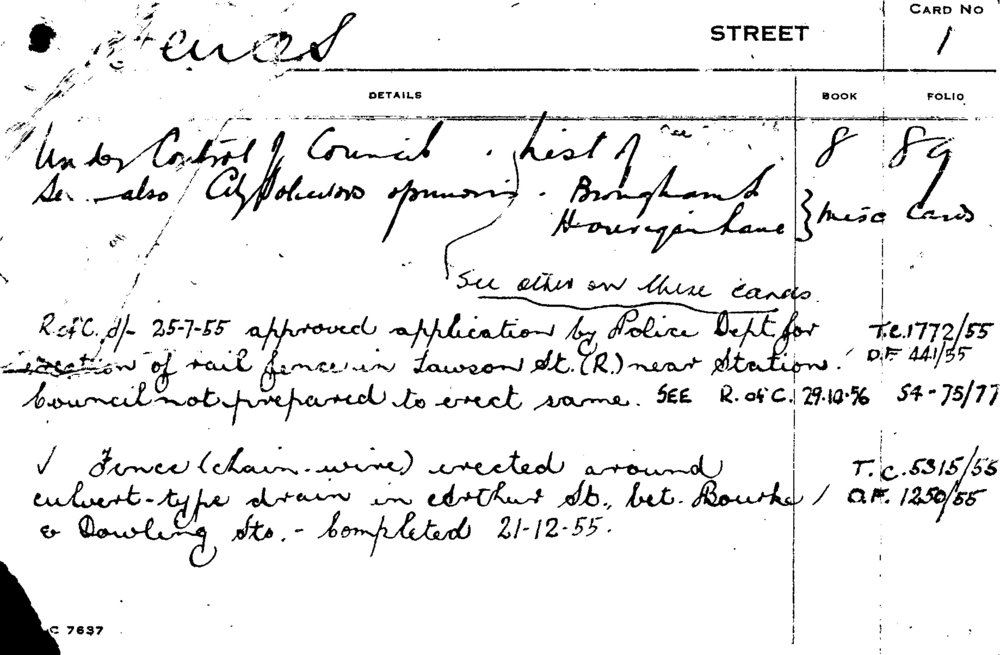 Fences STREET CARD NO 1
DETAILS BOOK FOLIO
Under Control of Council . List of 8 89
See also City Solicitors opinions . Brougham L
Hourigan Lane } Misc Cards
See other on these cards
R. of C. d/- 25-7-55 approved application by Police Dept for T.C. 1772/55
erection of rail fence in Lawson St. (R.) near Station. D.F. 441/55
Council not prepared to erect same. SEE R. of C. 29.10.56 54-75/77
√ Fence (chain-wire) erected around T.C. 5315/55
culvert-type drain in Arthur St., bet. Bourke / D.F. 1250/55
& Dowling Sts. - Completed 21-12-55.
C 7637